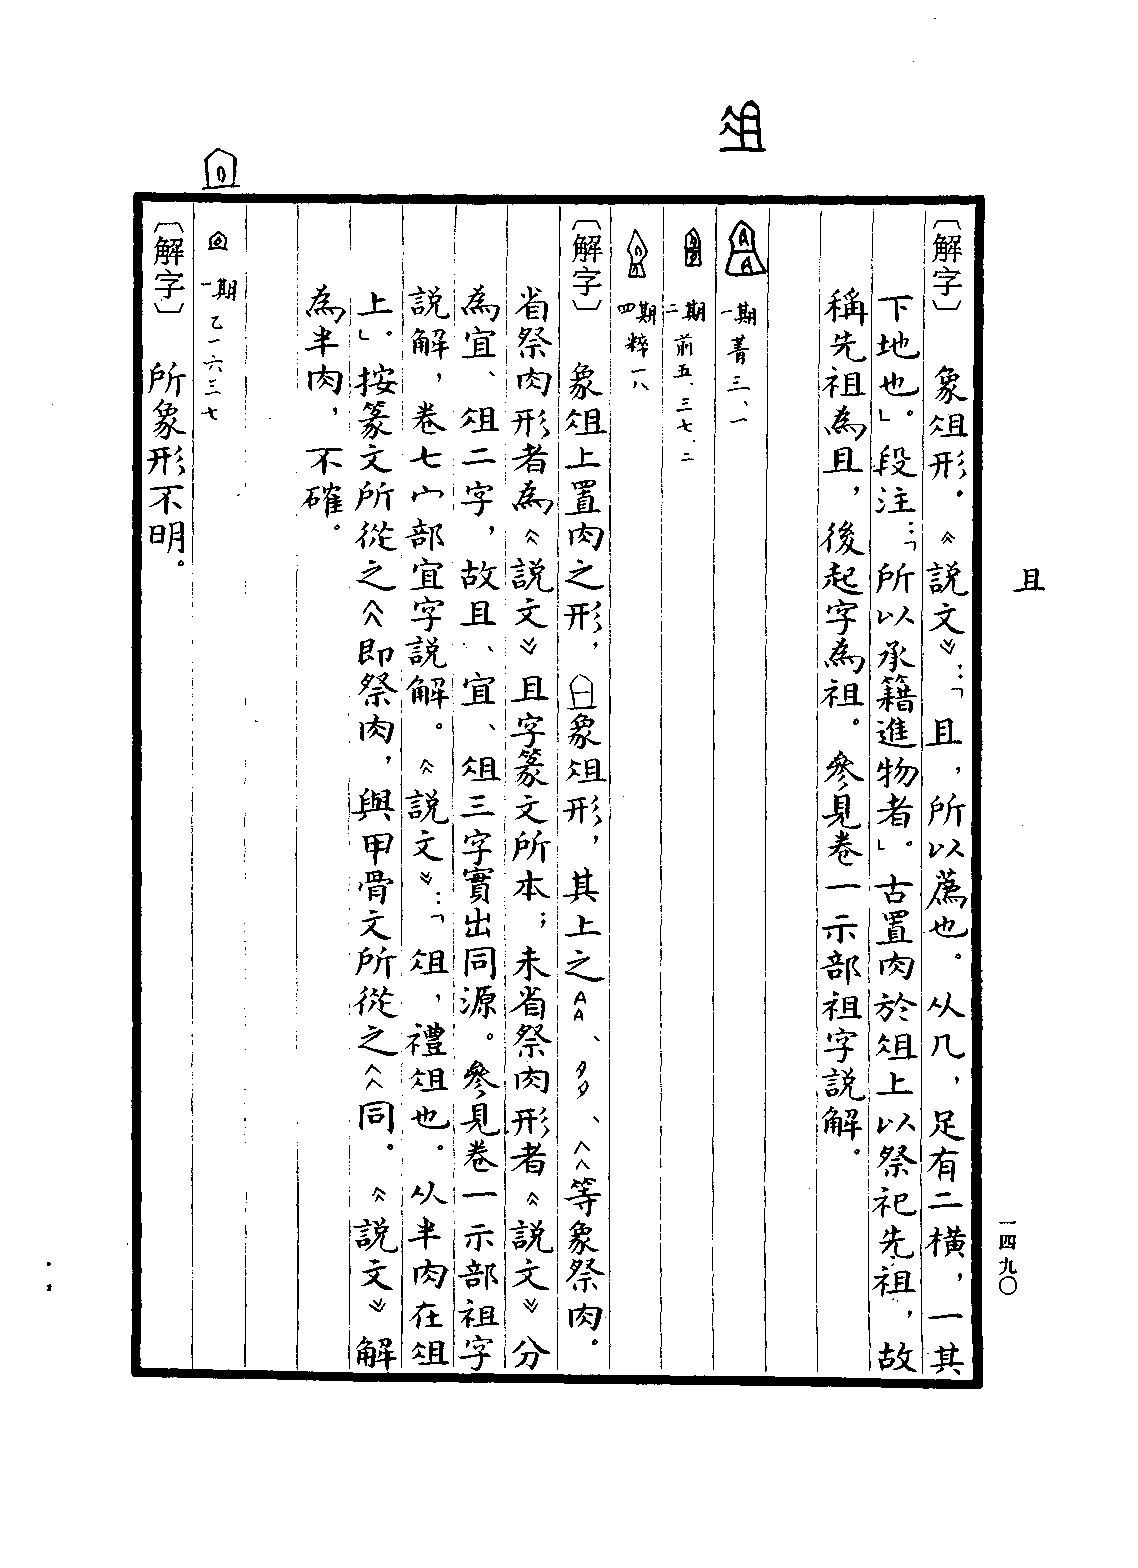 且
一四九〇
〔解字〕 象俎形．《說文》：「且，所以薦也。从几，足有二橫，一其
下地也」。段注：「所以承籍進物者」。古置肉於俎上以祭祀先祖，故
稱先祖為且，後起字為祖。參見卷一示部祖字說解。
俎
一期 菁三、一
二期 前五、三七、二
四期 粹一八
〔解字〕 象俎上置肉之形，象俎形，其上之、、等象祭肉。
省祭肉形者為《說文》且字篆文所本；未省祭肉形者《說文》分
為宜、俎二字，故且、宜、俎三字實出同源。參見卷一示部祖字
說解，卷七宀部宜字說解。《說文》：「俎，禮俎也．从半肉在俎
上」。按篆文所從之即祭肉，與甲骨文所從之同。《說文》解
為半肉，不確。
一期 乙一六三七
〔解字〕 所象形不明。